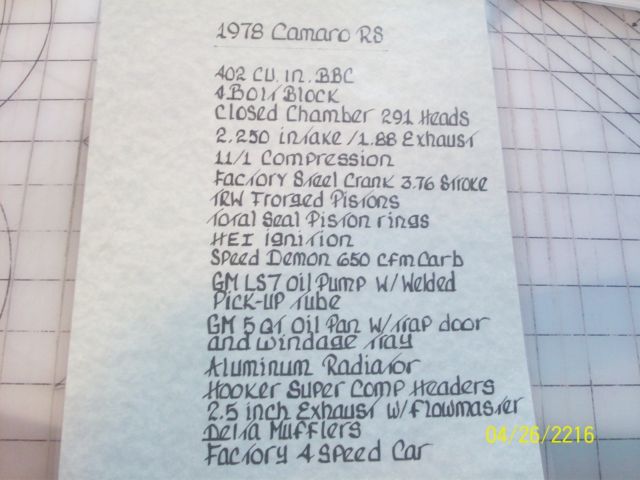 1978 Camaro RS
402 CU. in. BBC
4 Bolt Block
Closed Chamber 291 Heads
2.250 intake / 1.88 Exhaust
11/1 Compression
Factory Steel Crank 3.76 Stroke
TRW Frorged Pistons
Total Seal Piston rings
HEI ignition
Speed Demon 650 cfm Carb
GM LS7 Oil Pump W/ Welded
Pick-UP Tube
GM 5 QT Oil Pan W/Trap door
and Windage Tray
Aluminum Radiator
Hooker Super Comp Headers
2.5 inch Exhaust W/Flowmaster
Delta Mufflers
Factory 4 Speed Car
04/26/2216